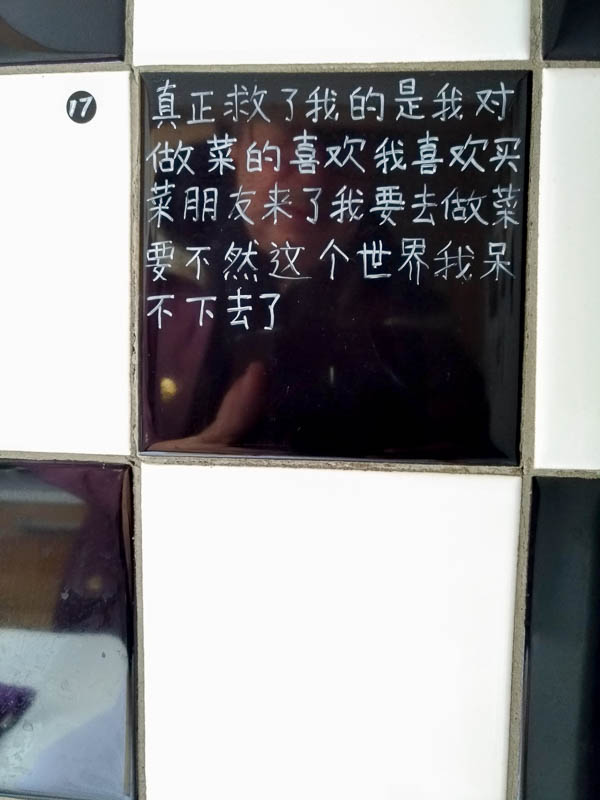 17
真正救了我的是我对
做菜的喜欢我喜欢买
菜朋友来了我要去做菜
要不然这个世界我呆
不下去了